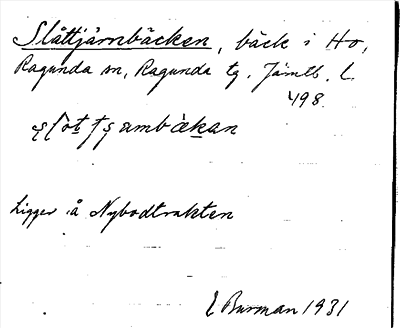 Slåttjärnbäcken, bäck i Ho,
Ragunda sn, Ragunda tg. Jämtl. L.
498.
Ligger å Nybodtrakten
E Burman 1931